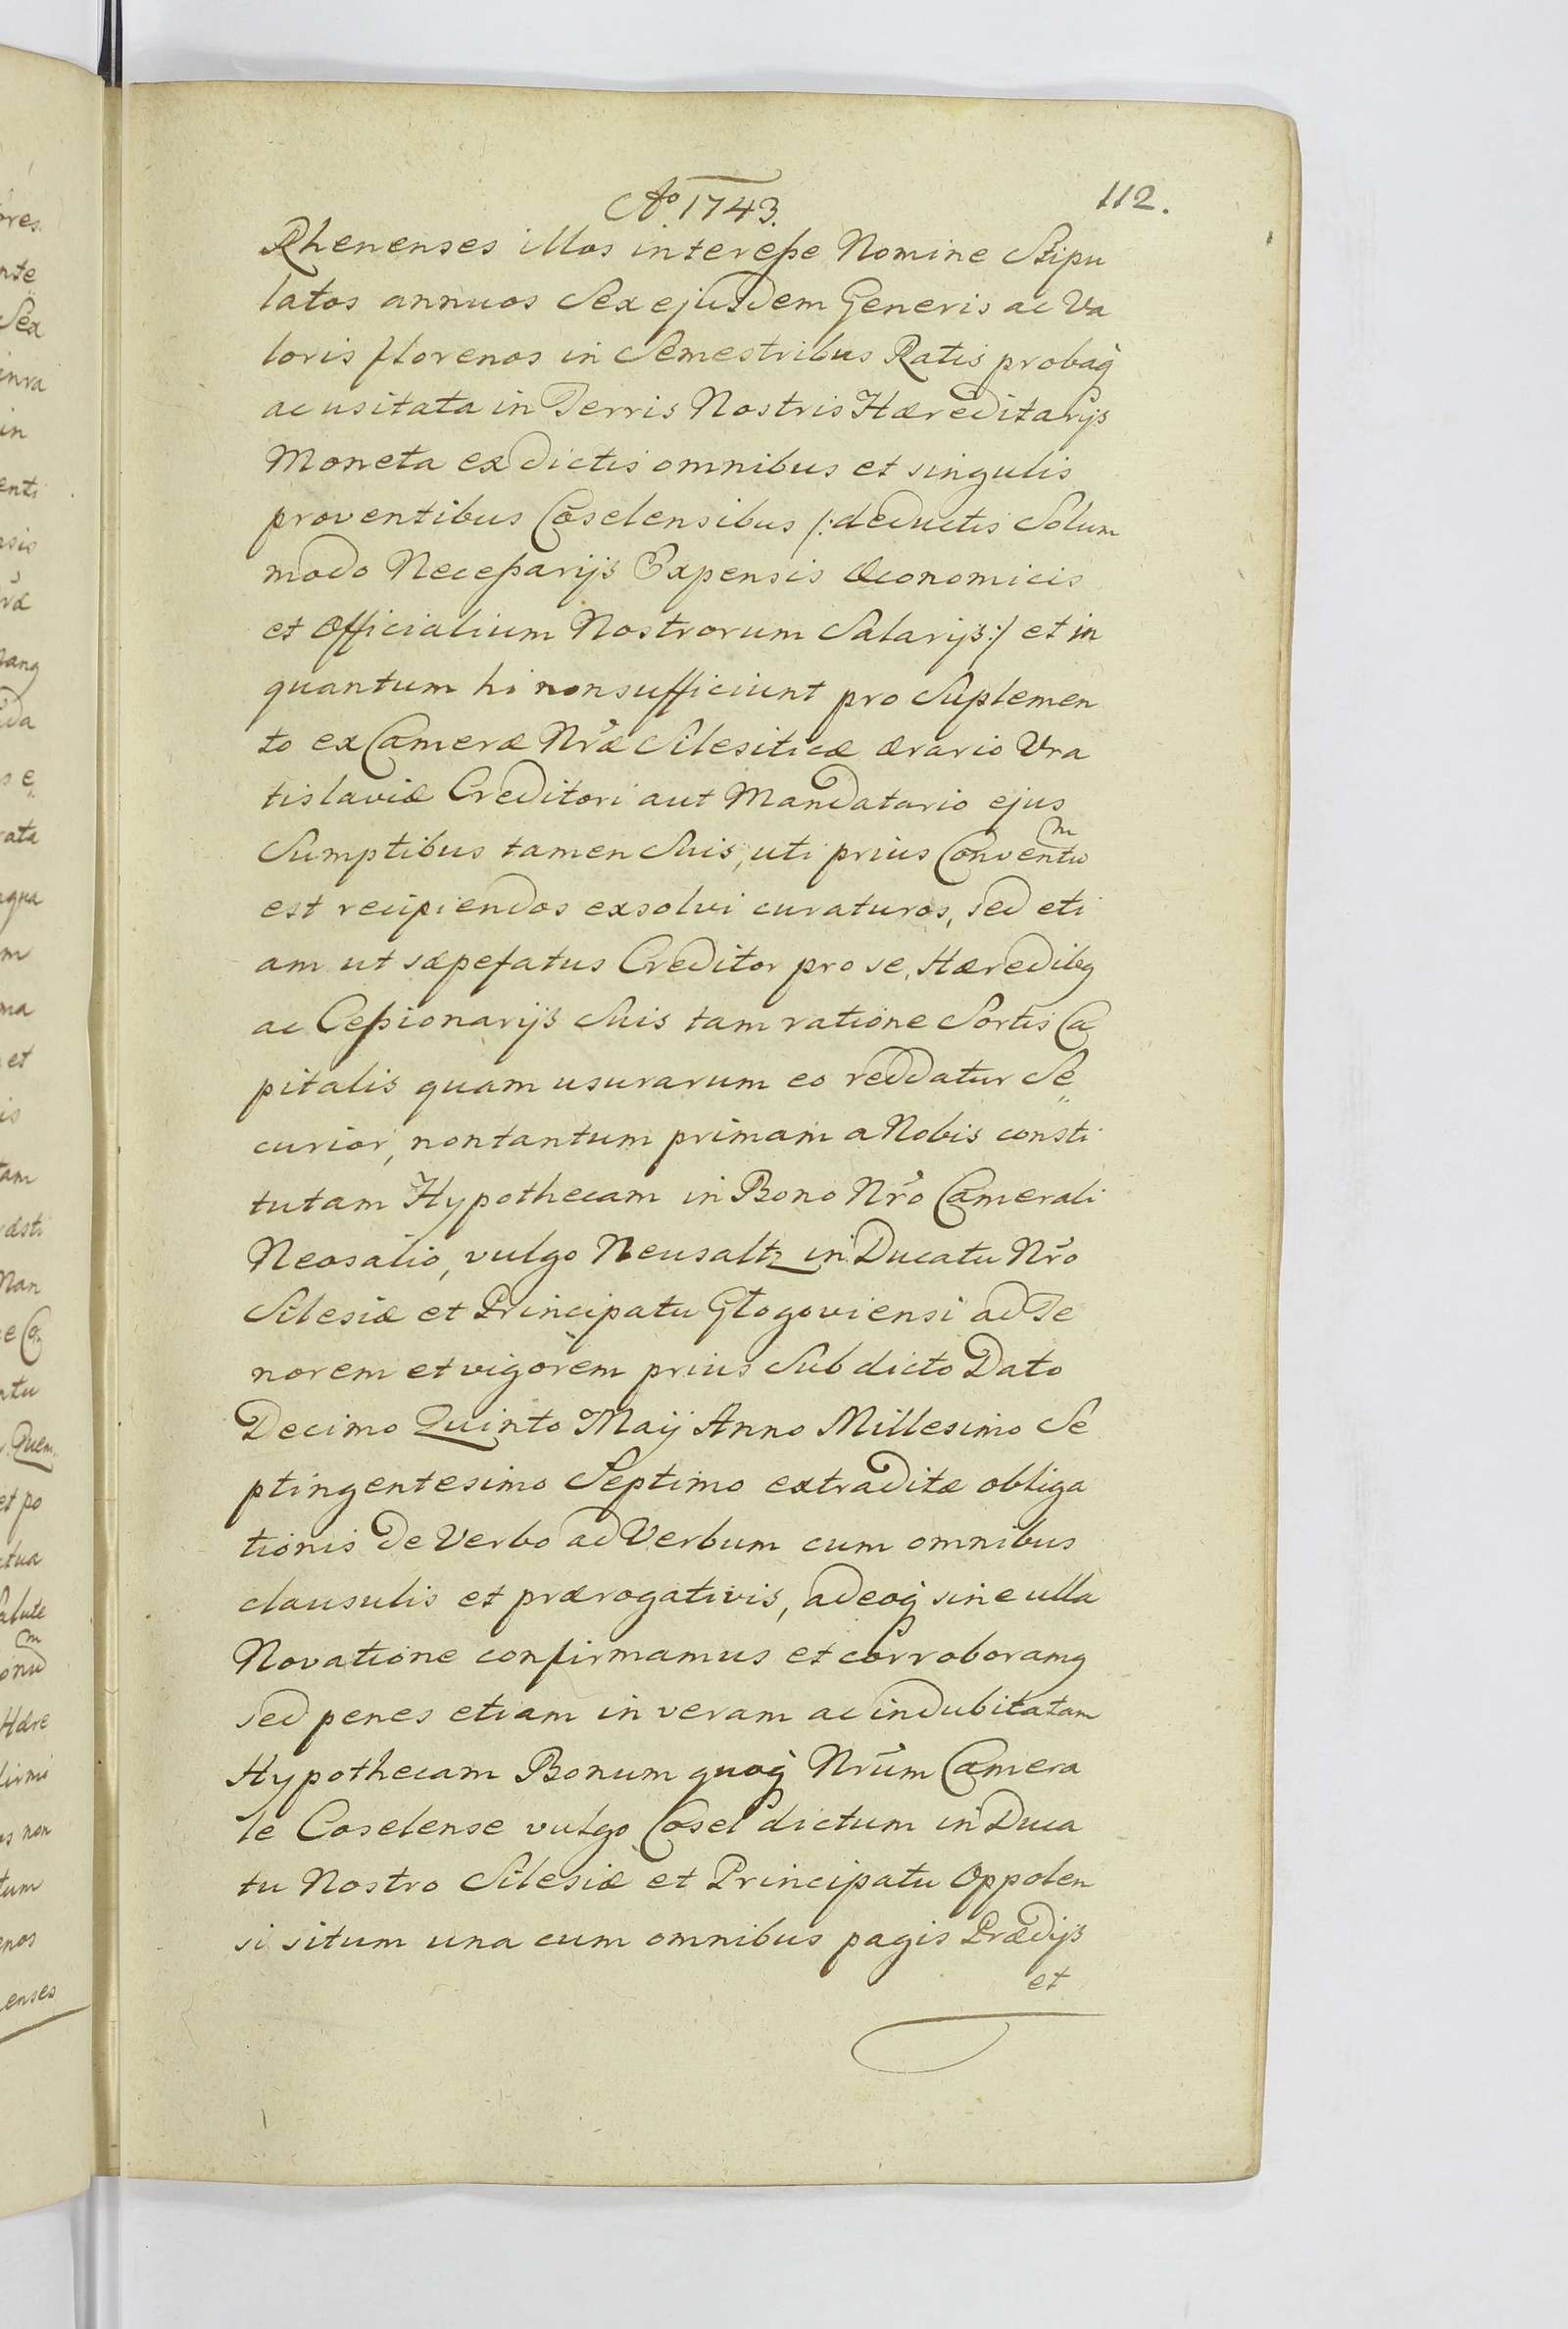 Ao 1743.
112.
Rhenenses illos interesse Nomine Stipu
latos annuos Sex ejusdem Generis ac Va
loris florenos in Semestribus Ratis probaq̃
ac usitata in Terris Nostris Hæreditarijs
Moneta ex dictis omnibus et singulis
proventibus Coselensibus /: deductis Solum
modo Necessarijs Expensis Œconomicis
et Officialium Nostrorum Salarijs :/ et in
quantum hi non sufficiunt pro Suplemen
to ex Cameræ Nr̃æ Silesiticæ ærario Vra
tislaviæ Creditori aut Mandatario ejus
Sumptibus tamen Suis, uti prius Conventũ
est recipiendos exsolvi curaturos, sed eti
am ut sæpefatus Creditor pro se, Hæredibq
ac Cessionarijs Suis tam ratione Sortis Ca
pitalis quam usurarum eo reddatur Se
curior, non tantum primam a Nobis consti
tutam Hypothecam in Bono Nr̃o Camerali
Neosalio, vulgo Neusaltz in Ducatu Nr̃o
Silesiæ et Principatu Glogoviensi ad Te
norem et vigorem prius Sub dicto Dato
Decimo Quinto Maij Anno Millesimo Se
ptingentesimo Septimo extraditæ obliga
tionis de Verbo ad Verbum cum omnibus
clausulis et prærogativis, adeoq̃ sine ulla
Novatione confirmamus et corroboramq
sed penes etiam in veram ac indubitatam
Hypothecam Bonum quoq̃ Nr̃um Camera
le Coselense vulgo Cosel dictum in Duca
tu Nostro Silesiæ et Principatu Oppolen
si situm una cum omnibus pagis Prædijs
et